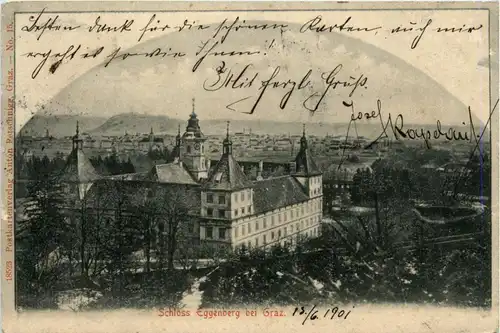 Besten Dank für die schönen Karten, auch mir
ergeht es sowie Ihnen!
Mit herzl. Gruß
Josef
18523 Postkartenverlag Anton Patschnigg, Graz. — No. 15.
Schloss Eggenberg bei Graz.
15./6. 1901